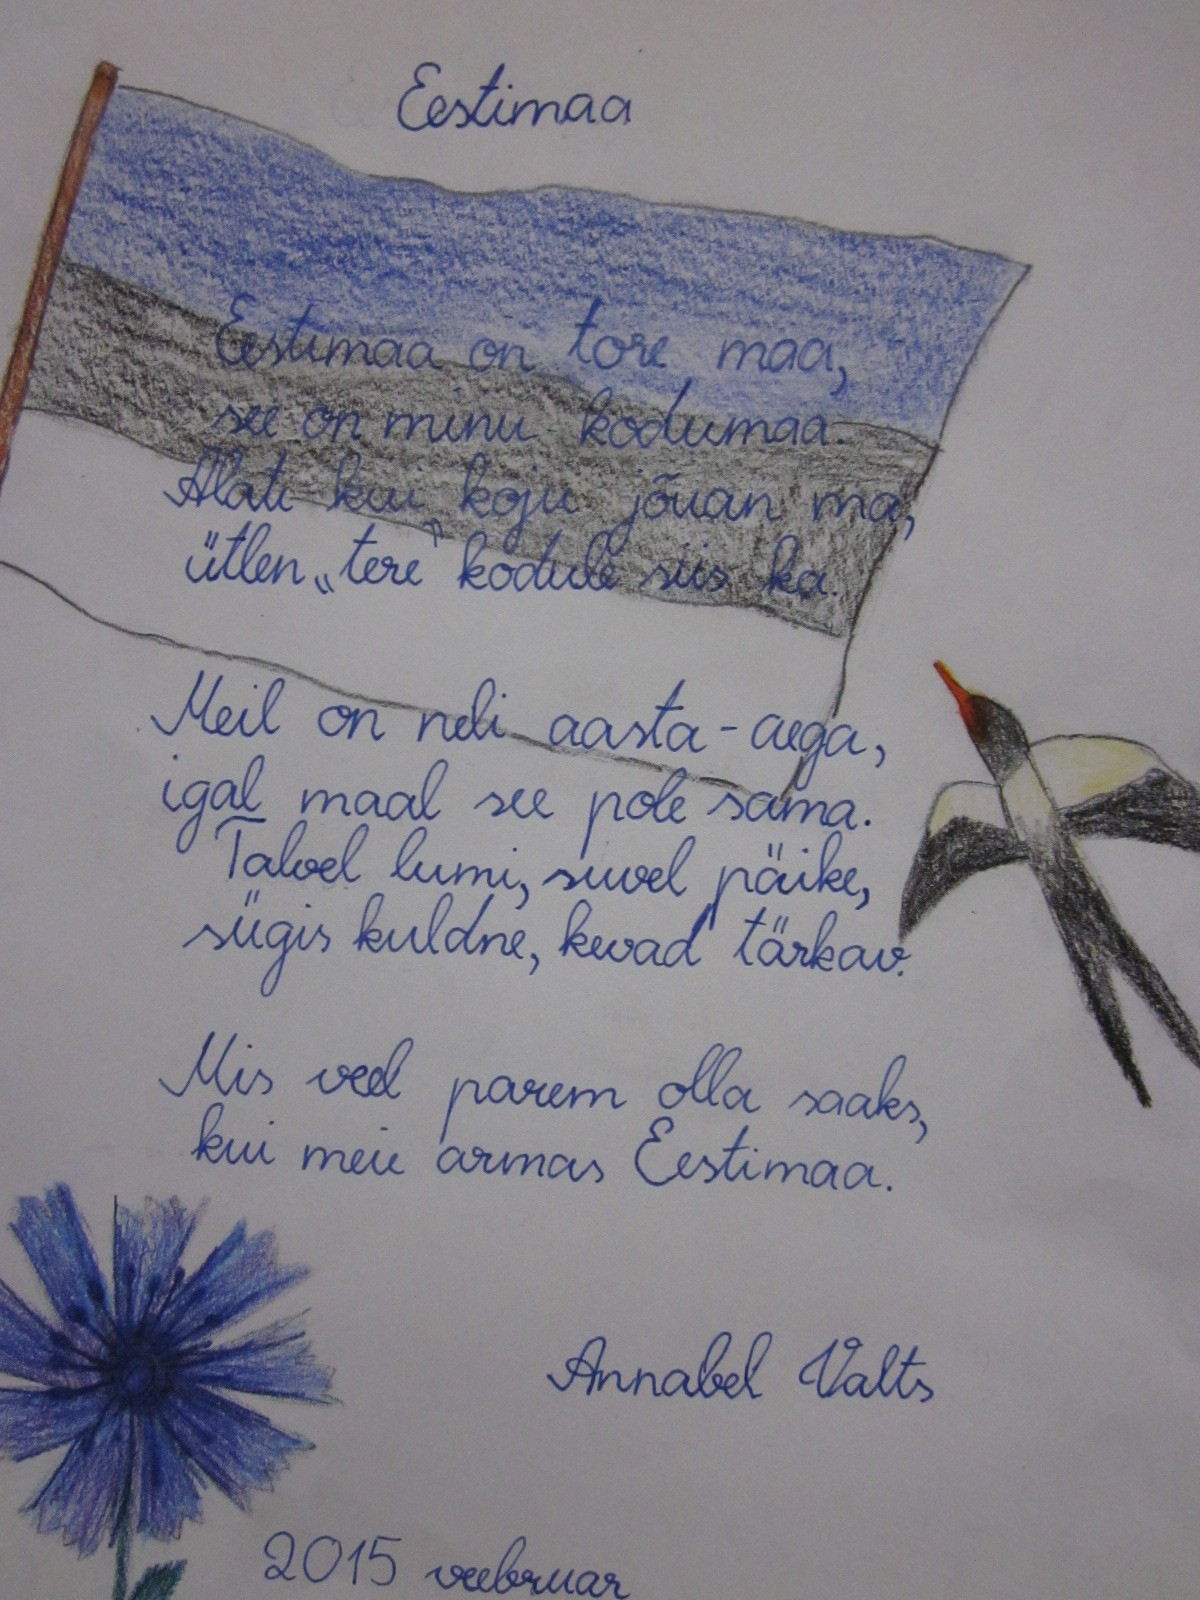 Eestimaa
Eestimaa on tore maa,
see on minu kodumaa.
Alati kui koju jõuan ma,
ütlen „tere” kodule siis ka.
Meil on neli aasta-aega,
igal maal see pole sama.
Talvel lumi, suvel päike,
sügis kuldne, kevad tärkav.
Mis veel parem olla saaks,
kui meie armas Eestimaa.
Annabel Valts
2015 veebruar